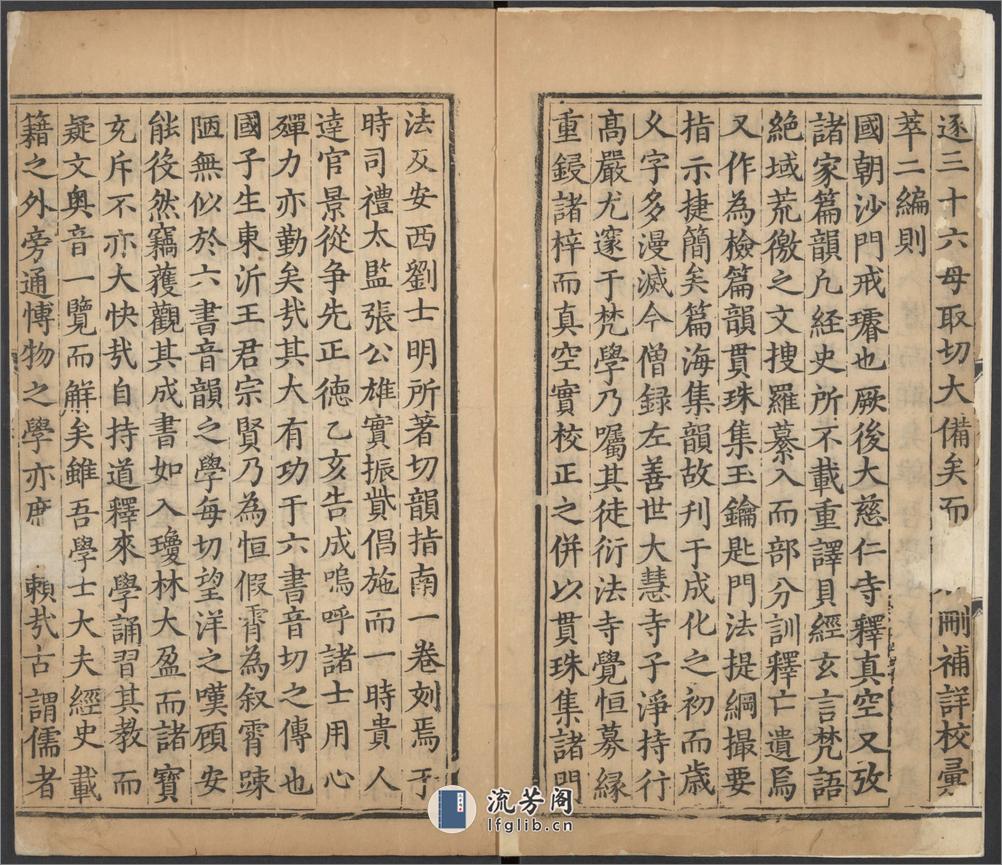 逐三十六母取切大備矣而刪補詳校彙
萃二編則
國朝沙門戒璿也厥後大慈仁寺釋真空又攷
諸家篇韻凢經史所不載重譯貝經玄言梵語
絶域荒徼之文搜羅纂入而部分訓釋亡遺焉
又作為檢篇韻貫珠集玉鑰匙門法提綱撮要
指示捷簡矣篇海集韻故刋于成化之初而歳
乆字多漫滅今僧録左善世大慧寺子淨持行
髙嚴尤邃于梵學乃囑其徒衍法寺覺恒募縁
重鋟諸梓而真空實校正之併以貫珠集諸門
法及安西劉士明所著切韻指南一卷刻焉于
時司禮太監張公雄實振貲倡施而一時貴人
達官景從争先正德乙亥告成嗚呼諸士用心
殫力亦勤矣㢤其大有功于六書音切之傳也
國子生東沂王君宗賢乃為恒假霄為叙霄踈
陋無似於六書音韻之學每切望洋之嘆頋安
能役然竊蒦觀其成書如入瓊林大盈而諸寶
充斥不亦大快㢤自持道釋來學誦習其教而
疑文奥音一覽而解矣雖吾學士大夫經史載
籍之外旁通愽物之學亦庶賴㢤古謂儒者
流芳阁
lfglib.cn